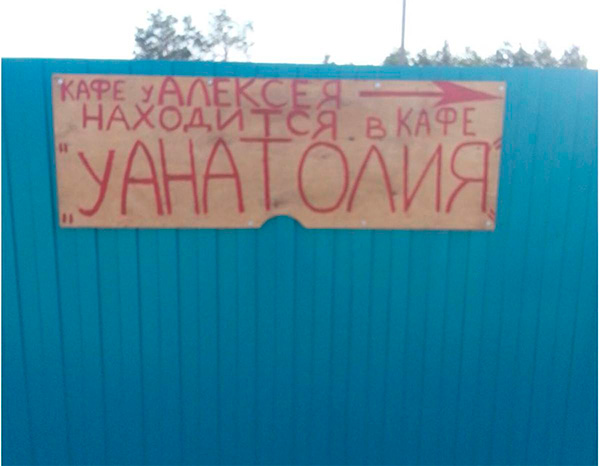 КАФЕ у АЛЕКСЕЯ
НАХОДИТСЯ В КАФЕ
"УАНАТОЛИЯ"